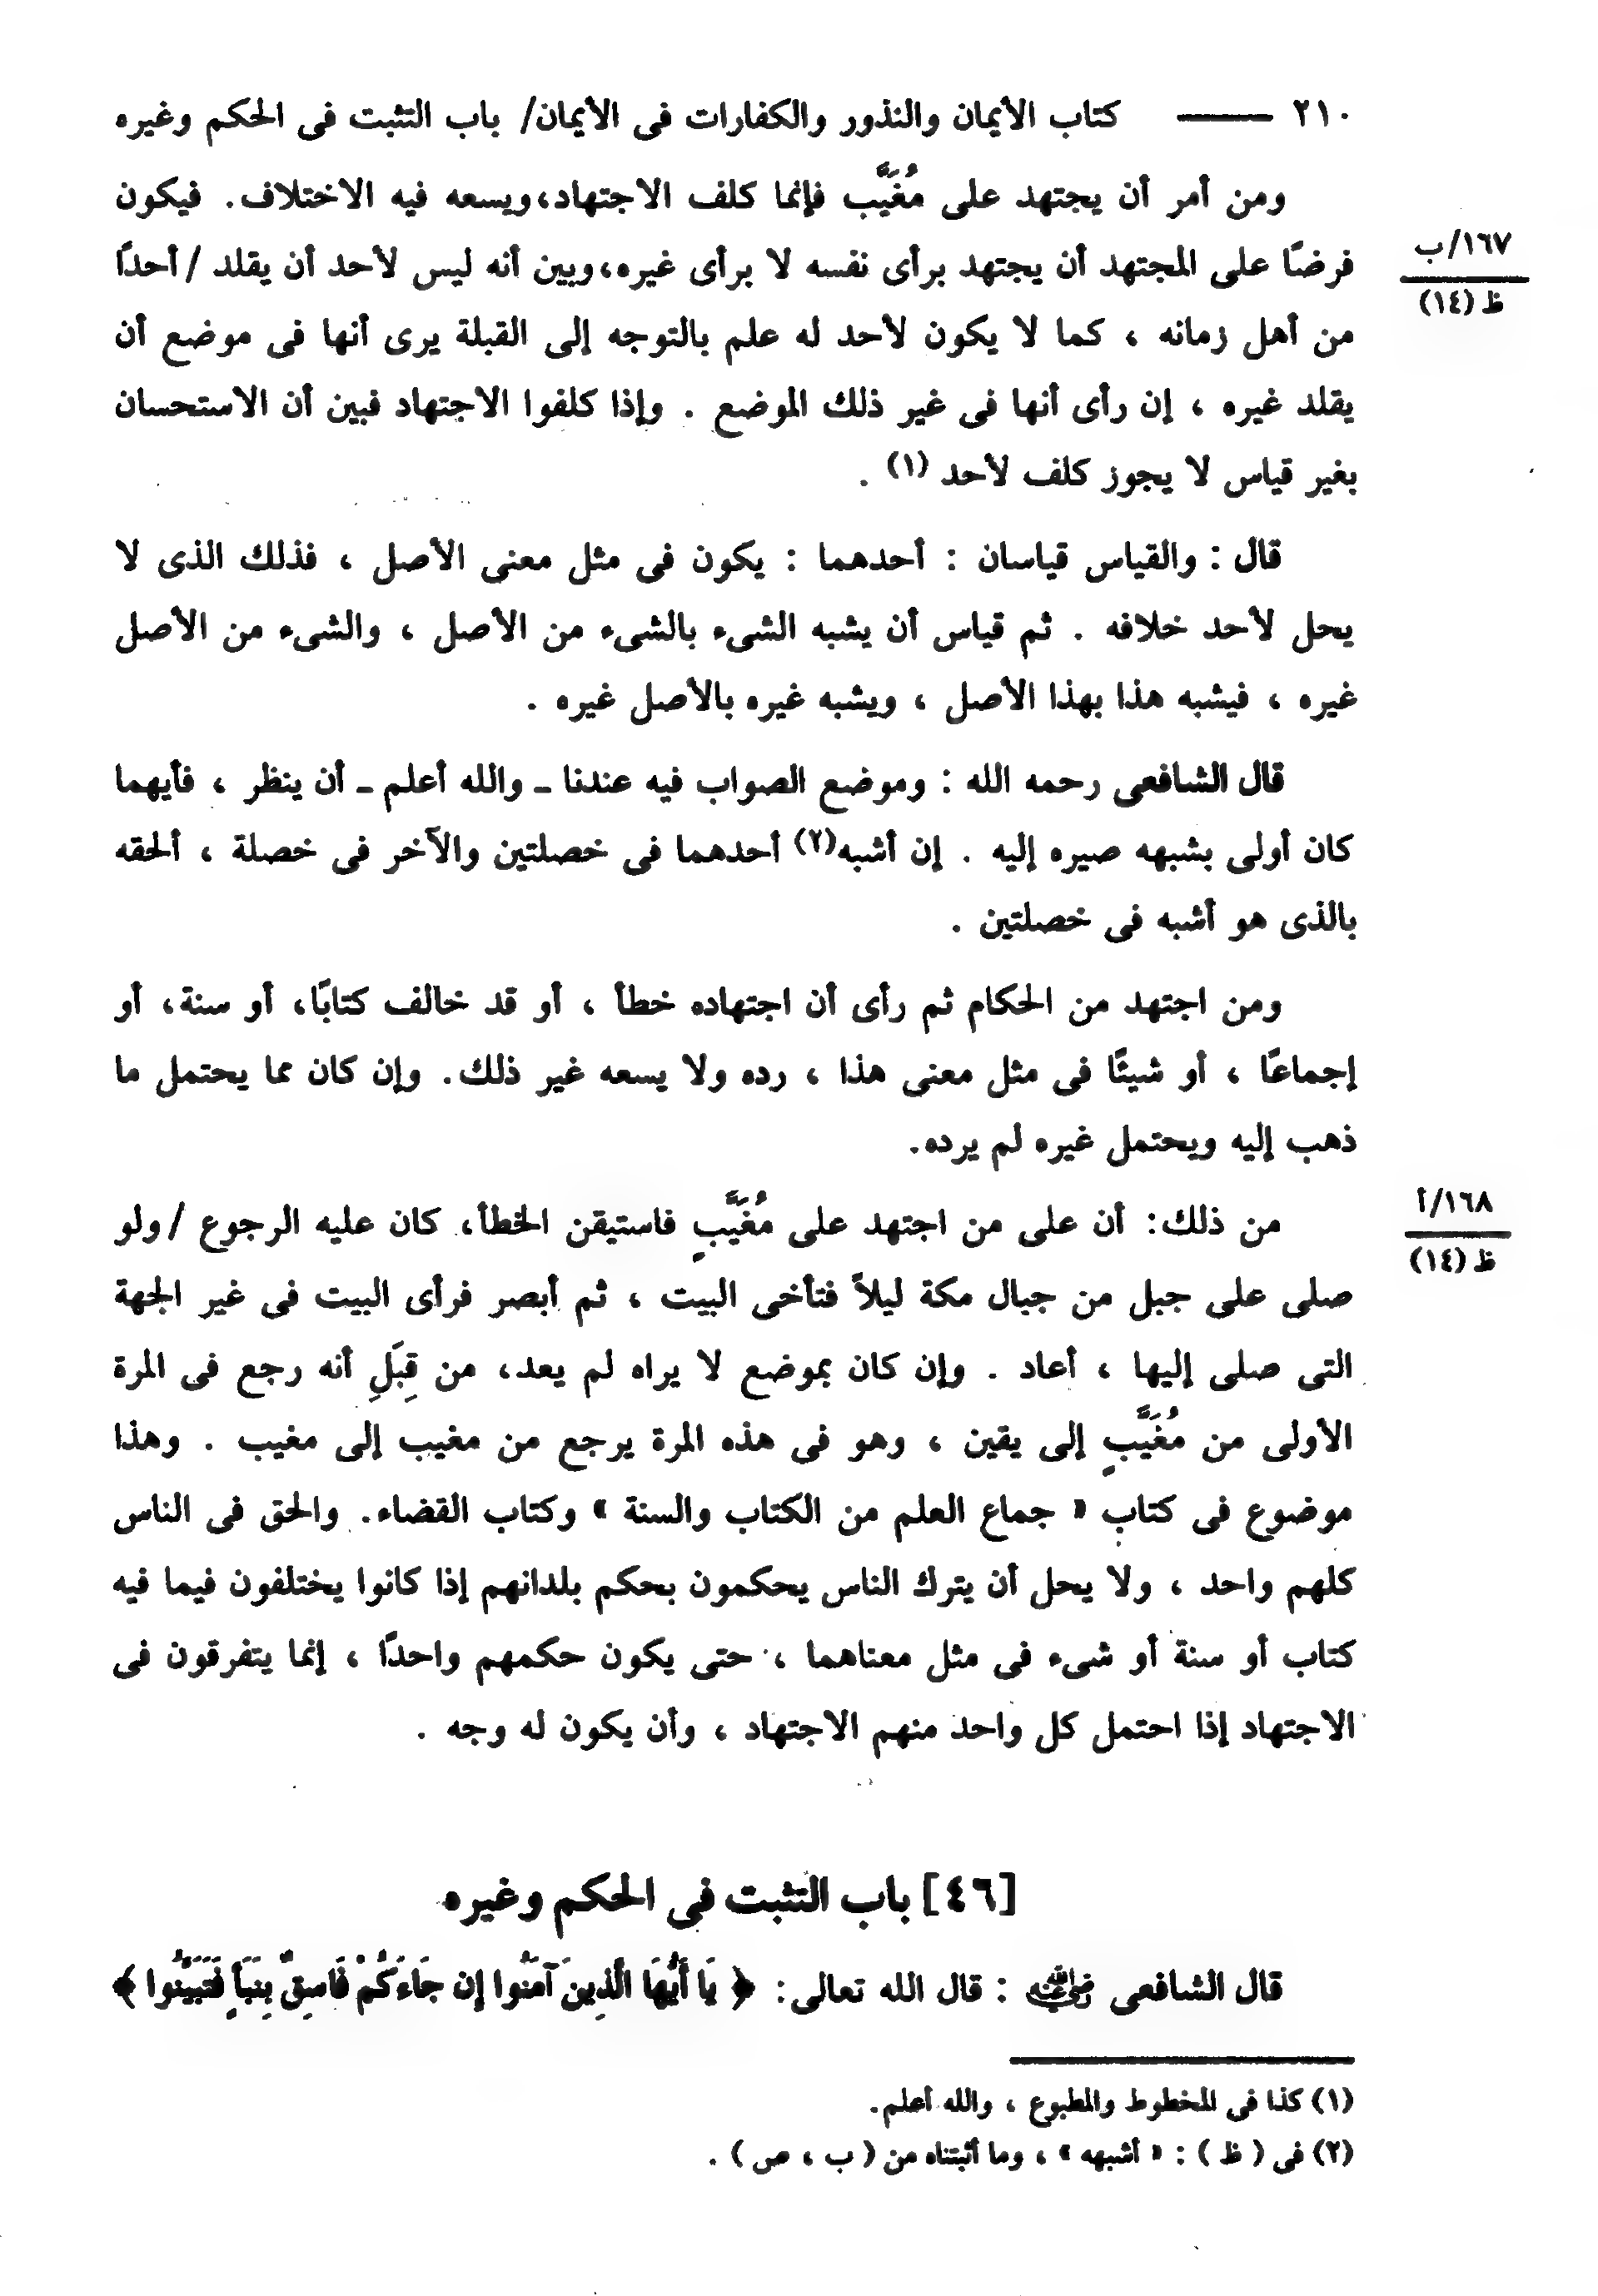 ٢١٠ ——— كتاب الأيمان والنذور والكفارات فى الأيمان/ باب التثبت فى الحكم وغيره
ومن أمر أن يجتهد على مُغَيَّب فإنما كلف الاجتهاد،ويسعه فيه الاختلاف. فيكون
فرضًا على المجتهد أن يجتهد برأى نفسه لا برأى غيره،وبين أنه ليس لأحد أن يقلد /أحدًا
١٦٧/ب
ظ (١٤)
من أهل زمانه ، كما لا يكون لأحد له علم بالتوجه إلى القبلة يرى أنها فى موضع أن
يقلد غيره ، إن رأى أنها فى غير ذلك الموضع . وإذا كلفوا الاجتهاد فبين أن الاستحسان
بغير قياس لا يجوز كلف لأحد (١) .
قال : والقياس قياسان : أحدهما : يكون فى مثل معنى الأصل ، فذلك الذى لا
يحل لأحد خلافه . ثم قياس أن يشبه الشىء بالشىء من الأصل ، والشىء من الأصل
غيره ، فيشبه هذا بهذا الأصل ، ويشبه غيره بالأصل غيره .
قال الشافعى رحمه الله : وموضع الصواب فيه عندنا ـ والله أعلم ـ أن ينظر ، فأيهما
كان أولى بشبهه صيره إليه . إن أشبه(٢) أحدهما فى خصلتين والآخر فى خصلة ، ألحقه
بالذى هو أشبه فى خصلتين .
ومن اجتهد من الحكام ثم رأى أن اجتهاده خطأ ، أو قد خالف كتابًا، أو سنة، أو
إجماعًا ، أو شيئًا فى مثل معنى هذا ، رده ولا يسعه غير ذلك. وإن كان مما يحتمل ما
ذهب إليه ويحتمل غيره لم يرده.
من ذلك: أن على من اجتهد على مُغَيَّبٍ فاستيقن الخطأ، كان عليه الرجوع /ولو
١٦٨/أ
ظ (١٤)
صلى على جبل من جبال مكة ليلاً فتأخى البيت ، ثم أبصر فرأى البيت فى غير الجهة
التى صلى إليها ، أعاد . وإن كان بموضع لا يراه لم يعد، من قِبَلِ أنه رجع فى المرة
الأولى من مُغَيَّبٍ إلى يقين ، وهو فى هذه المرة يرجع من مغيب إلى مغيب . وهذا
موضوع فى كتاب « جماع العلم من الكتاب والسنة » وكتاب القضاء. والحق فى الناس
كلهم واحد ، ولا يحل أن يترك الناس يحكمون بحكم بلدانهم إذا كانوا يختلفون فيما فيه
كتاب أو سنة أو شىء فى مثل معناهما ، حتى يكون حكمهم واحدًا ، إنما يتفرقون فى
الاجتهاد إذا احتمل كل واحد منهم الاجتهاد ، وأن يكون له وجه .
[٤٦] باب التثبت فى الحكم وغيره
قال الشافعى رضي الله عنه : قال الله تعالى: ﴿ يَا أَيُّهَا الَّذِينَ آمَنُوا إِن جَاءَكُمْ فَاسِقٌ بِنَبَأٍ فَتَبَيَّنُوا ﴾
(١) كذا فى المخطوط والمطبوع ، والله أعلم.
(٢) فى ( ظ ) : « أشبهه » ، وما أثبتناه من ( ب ، ص ) .